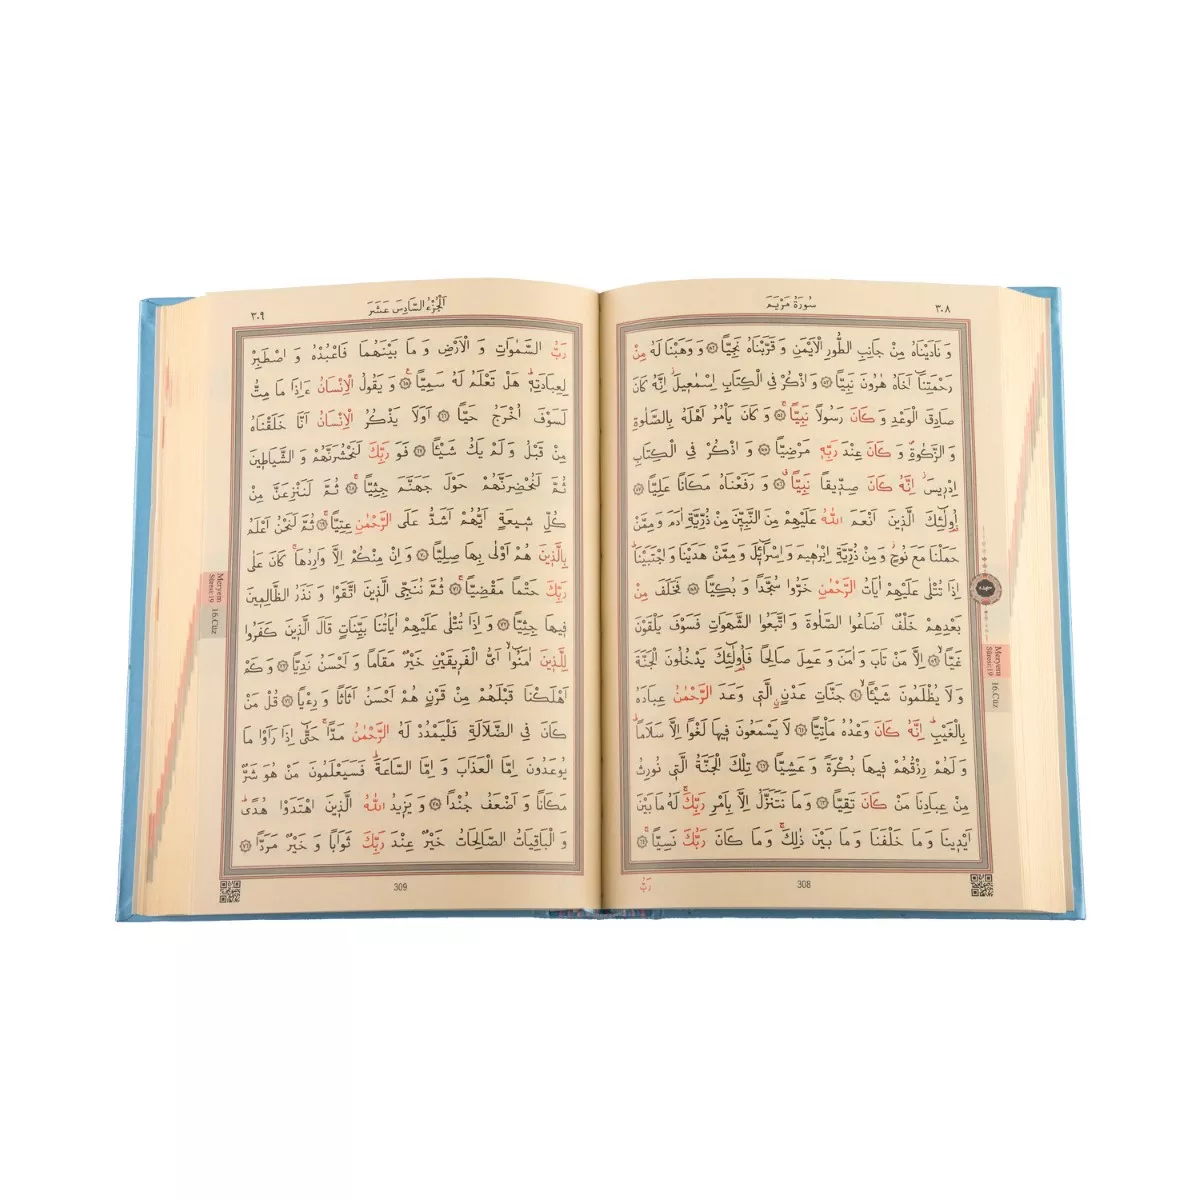 ٣٠٨
سُورَةُ مَرْيَمَ
وَ نَادَيْنَاهُ مِنْ جَانِبِ الطُّورِ الْاَيْمَنِ وَ قَرَّبْنَاهُ نَجِيًّا ٥٢ وَ وَهَبْنَا لَهُ مِنْ
رَحْمَتِنَٓا اَخَاهُ هٰرُونَ نَبِيًّا ٥٣ وَ اذْكُرْ فِي الْكِتَابِ اِسْمٰعٖيلَؗ اِنَّهُ كَانَ
صَادِقَ الْوَعْدِ وَ كَانَ رَسُولًا نَبِيًّاۚ ٥٤ وَ كَانَ يَأْمُرُ اَهْلَهُ بِالصَّلٰوةِ
وَ الزَّكٰوةِ وَ كَانَ عِنْدَ رَبِّهٖ مَرْضِيًّا ٥٥ وَ اذْكُرْ فِي الْكِتَابِ
اِدْرٖيسَؗ اِنَّهُ كَانَ صِدّٖيقًا نَبِيًّاۗ ٥٦ وَ رَفَعْنَاهُ مَكَانًا عَلِيًّا ٥٧
اُو۬لٰٓئِكَ الَّذٖينَ اَنْعَمَ اللّٰهُ عَلَيْهِمْ مِنَ النَّبِيّٖنَ مِنْ ذُرِّيَّةِ اٰدَمَ وَ مِمَّنْ
حَمَلْنَا مَعَ نُوحٍؗ وَ مِنْ ذُرِّيَّةِ اِبْرٰهٖيمَ وَ اِسْرَٓائٖلَؗ وَ مِمَّنْ هَدَيْنَا وَ اجْتَبَيْنَاۜ
اِذَا تُتْلٰى عَلَيْهِمْ اٰيَاتُ الرَّحْمٰنِ خَرُّوا سُجَّدًا وَ بُكِيًّا ٥٨ فَخَلَفَ مِنْ
بَعْدِهِمْ خَلْفٌ اَضَاعُوا الصَّلٰوةَ وَ اتَّبَعُوا الشَّهَوَاتِ فَسَوْفَ يَلْقَوْنَ
غَيًّاۙ ٥٩ اِلَّا مَنْ تَابَ وَ اٰمَنَ وَ عَمِلَ صَالِحًا فَاُو۬لٰٓئِكَ يَدْخُلُونَ الْجَنَّةَ
وَ لَا يُظْلَمُونَ شَيْـًٔاۙ ٦٠ جَنَّاتِ عَدْنٍۨ الَّتٖي وَعَدَ الرَّحْمٰنُ عِبَادَهُ
بِالْغَيْبِۜ اِنَّهُ كَانَ وَعْدُهُ مَأْتِيًّا ٦١ لَا يَسْمَعُونَ فٖيهَا لَغْوًا اِلَّا سَلَامًاۜ
وَ لَهُمْ رِزْقُهُمْ فٖيهَا بُكْرَةً وَ عَشِيًّا ٦٢ تِلْكَ الْجَنَّةُ الَّتٖي نُورِثُ
مِنْ عِبَادِنَا مَنْ كَانَ تَقِيًّا ٦٣ وَ مَا نَتَنَزَّلُ اِلَّا بِاَمْرِ رَبِّكَۚ لَهُ مَا بَيْنَ
اَيْدٖينَا وَ مَا خَلْفَنَا وَ مَا بَيْنَ ذٰلِكَۚ وَ مَا كَانَ رَبُّكَ نَسِيًّاۚ ٦٤
رَبُّ
308
Meryem
Sûresi:19
16.Cüz
٣٠٩
اَلْجُزْءُ السَّادِسَ عَشَرَ
رَبُّ السَّمٰوَاتِ وَ الْاَرْضِ وَ مَا بَيْنَهُمَا فَاعْبُدْهُ وَ اصْطَبِرْ
لِعِبَادَتِهٖۜ هَلْ تَعْلَمُ لَهُ سَمِيًّاۚ ٦٥ وَ يَقُولُ الْاِنْسَانُ ءَاِذَا مَا مِتُّ
لَسَوْفَ اُخْرَجُ حَيًّا ٦٦ اَوَلَا يَذْكُرُ الْاِنْسَانُ اَنَّا خَلَقْنَاهُ
مِنْ قَبْلُ وَ لَمْ يَكُ شَيْـًٔا ٦٧ فَوَ رَبِّكَ لَنَحْشُرَنَّهُمْ وَ الشَّيَاطٖينَ
ثُمَّ لَنُحْضِرَنَّهُمْ حَوْلَ جَهَنَّمَ جِثِيًّاۚ ٦٨ ثُمَّ لَنَنْزِعَنَّ مِنْ
كُلِّ شٖيعَةٍ اَيُّهُمْ اَشَدُّ عَلَى الرَّحْمٰنِ عِتِيًّاۚ ٦٩ ثُمَّ لَنَحْنُ اَعْلَمُ
بِالَّذٖينَ هُمْ اَوْلٰى بِهَا صِلِيًّا ٧٠ وَ اِنْ مِنْكُمْ اِلَّا وَارِدُهَاۚ كَانَ عَلٰى
رَبِّكَ حَتْمًا مَقْضِيًّاۚ ٧١ ثُمَّ نُنَجِّي الَّذٖينَ اتَّقَوْا وَ نَذَرُ الظَّالِمٖينَ
فٖيهَا جِثِيًّا ٧٢ وَ اِذَا تُتْلٰى عَلَيْهِمْ اٰيَاتُنَا بَيِّنَاتٍ قَالَ الَّذٖينَ كَفَرُوا
لِلَّذٖينَ اٰمَنُٓواۙ اَيُّ الْفَرٖيقَيْنِ خَيْرٌ مَقَامًا وَ اَحْسَنُ نَدِيًّا ٧٣ وَ كَمْ
اَهْلَكْنَا قَبْلَهُمْ مِنْ قَرْنٍ هُمْ اَحْسَنُ اَثَاثًا وَ رِءْيًا ٧٤ قُلْ مَنْ
كَانَ فِي الضَّلَالَةِ فَلْيَمْدُدْ لَهُ الرَّحْمٰنُ مَدًّاۚ حَتّٰٓى اِذَا رَاَوْا مَا
يُوعَدُونَ اِمَّا الْعَذَابَ وَ اِمَّا السَّاعَةَۜ فَسَيَعْلَمُونَ مَنْ هُوَ شَرٌّ
مَكَانًا وَ اَضْعَفُ جُنْدًا ٧٥ وَ يَزٖيدُ اللّٰهُ الَّذٖينَ اهْتَدَوْا هُدًىۜ
وَ الْبَاقِيَاتُ الصَّالِحَاتُ خَيْرٌ عِنْدَ رَبِّكَ ثَوَابًا وَ خَيْرٌ مَرَدًّا ٧٦
309
Meryem
Sûresi:19
16.Cüz